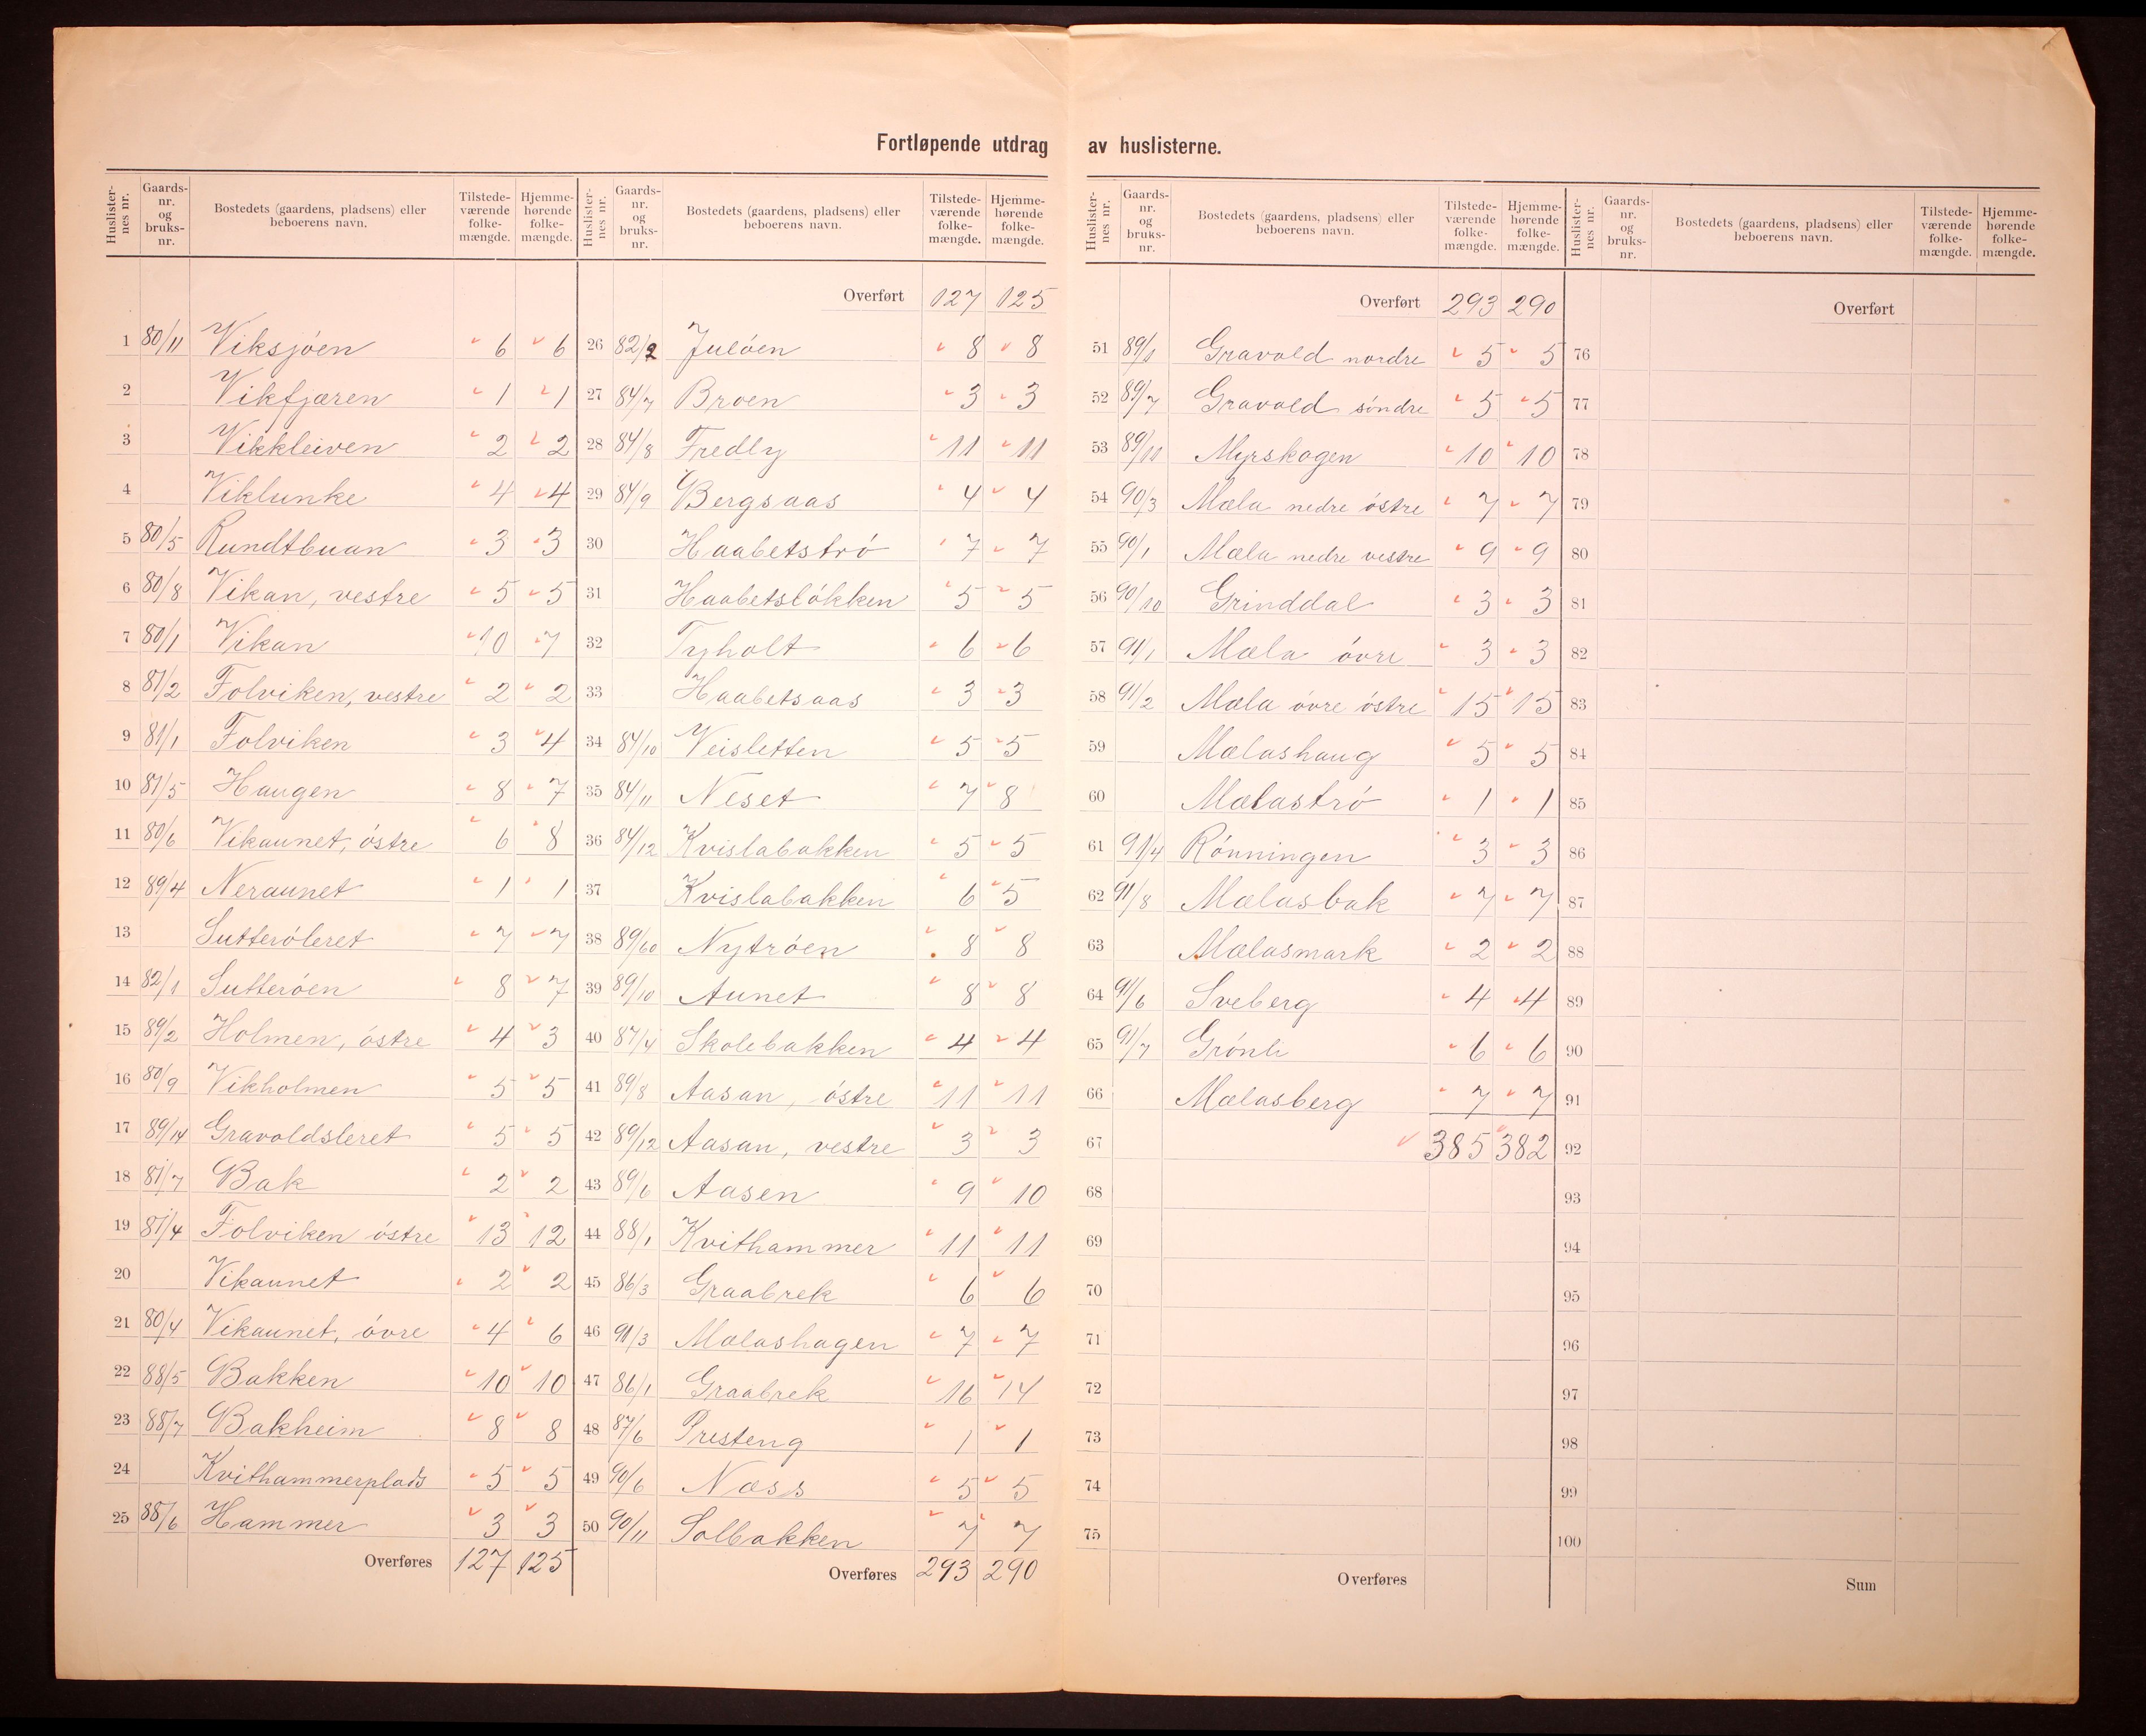 Fortløpende utdrag av huslisterne.
Huslisternes nr. Gaards-nr. og bruks-nr. Bostedets (gaardens, pladsens) eller beboerens navn. Tilstede-værende folke-mængde. Hjemme-hørende folke-mængde.
1 80/11 Viksjöen 6 6
2 Vikfjæren 1 1
3 Vikkleiven 2 2
4 Viklunke 4 4
5 80/5 Rundtbuan 3 3
6 80/8 Vikan, vestre 5 5
7 80/1 Vikan 10 7
8 81/2 Folviken, vestre 2 2
9 81/1 Folviken 3 4
10 81/5 Haugen 8 7
11 80/6 Vikaunet, östre 6 8
12 89/4 Neraunet 1 1
13 Sutteröleret 7 7
14 82/1 Sutteröen 8 7
15 89/2 Holmen, östre 4 3
16 80/9 Vikholmen 5 5
17 89/14 Gravoldsleret 5 5
18 81/7 Bak 2 2
19 81/4 Folviken östre 13 12
20 Vikaunet 2 2
21 80/4 Vikaunet, övre 4 6
22 88/5 Bakken 10 10
23 88/7 Bakheim 8 8
24 Kvithammerplads 5 5
25 88/6 Hammer 3 3
Overføres 127 125
Huslisternes nr. Gaards-nr. og bruks-nr. Bostedets (gaardens, pladsens) eller beboerens navn. Tilstede-værende folke-mængde. Hjemme-hørende folke-mængde.
Overført 127 125
26 82/2 Julöen 8 8
27 84/7 Broen 3 3
28 84/8 Fredly 11 11
29 84/9 Bergsaas 4 4
30 Haabetströ 7 7
31 Haabetslökken 5 5
32 Tyholt 6 6
33 Haabetsaas 3 3
34 84/10 Veisletten 5 5
35 84/11 Neset 7 8
36 84/12 Kvislabakken 5 5
37 Kvislabakken 6 5
38 Nytröen 8 8
39 89/10 Aunet 8 8
40 87/4 Skolebakken 4 4
41 89/8 Aasan, östre 11 11
42 89/12 Aasan, vestre 3 3
43 89/6 Aasen 9 10
44 88/1 Kvithammer 11 11
45 86/3 Graabrek 6 6
46 91/3 Mælashagen 7 7
47 86/1 Graabrek 16 14
48 87/6 Presteng 1 1
49 90/6 Næss 5 5
50 90/11 Solbakken 7 7
Overføres 293 290
Huslisternes nr. Gaards-nr. og bruks-nr. Bostedets (gaardens, pladsens) eller beboerens navn. Tilstede-værende folke-mængde. Hjemme-hørende folke-mængde.
Overført 293 290
51 89/1 Gravold nordre 5 5
52 89/7 Gravold söndre 5 5
53 89/11 Myrskogen 10 10
54 90/3 Mæla nedre östre 7 7
55 90/1 Mæla nedre vestre 9 9
56 90/10 Grinddal 3 3
57 91/1 Mæla övre 3 3
58 91/2 Mæla övre östre 15 15
59 Mælashaug 5 5
60 Mælaströ 1 1
61 91/4 Rönningen 3 3
62 91/8 Mælasbak 7 7
63 Mælasmark 2 2
64 91/6 Sveberg 4 4
65 91/7 Grönli 6 6
66 Mælasberg 7 7
67 385 382
68
69
70
71
72
73
74
75
Overføres
Huslisternes nr. Gaards-nr. og bruks-nr. Bostedets (gaardens, pladsens) eller beboerens navn. Tilstede-værende folke-mængde. Hjemme-hørende folke-mængde.
Overført
76
77
78
79
80
81
82
83
84
85
86
87
88
89
90
91
92
93
94
95
96
97
98
99
100
Sum